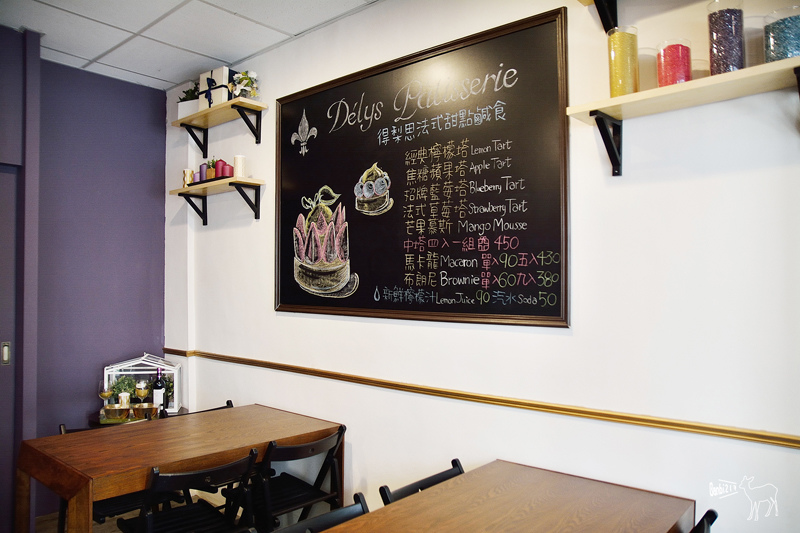 Délys Pâtisserie
得梨思法式甜點鹹食
經典檸檬塔 Lemon Tart
焦糖蘋果塔 Apple Tart
招牌藍莓塔 Blueberry Tart
法式草莓塔 Strawberry Tart
芒果慕斯 Mango Mousse
中塔四入一組 450
馬卡龍 Macaron 單入90五入430
布朗尼 Brownie 單入60九入380
新鮮檸檬汁 Lemon Juice 90 汽水 Soda 50